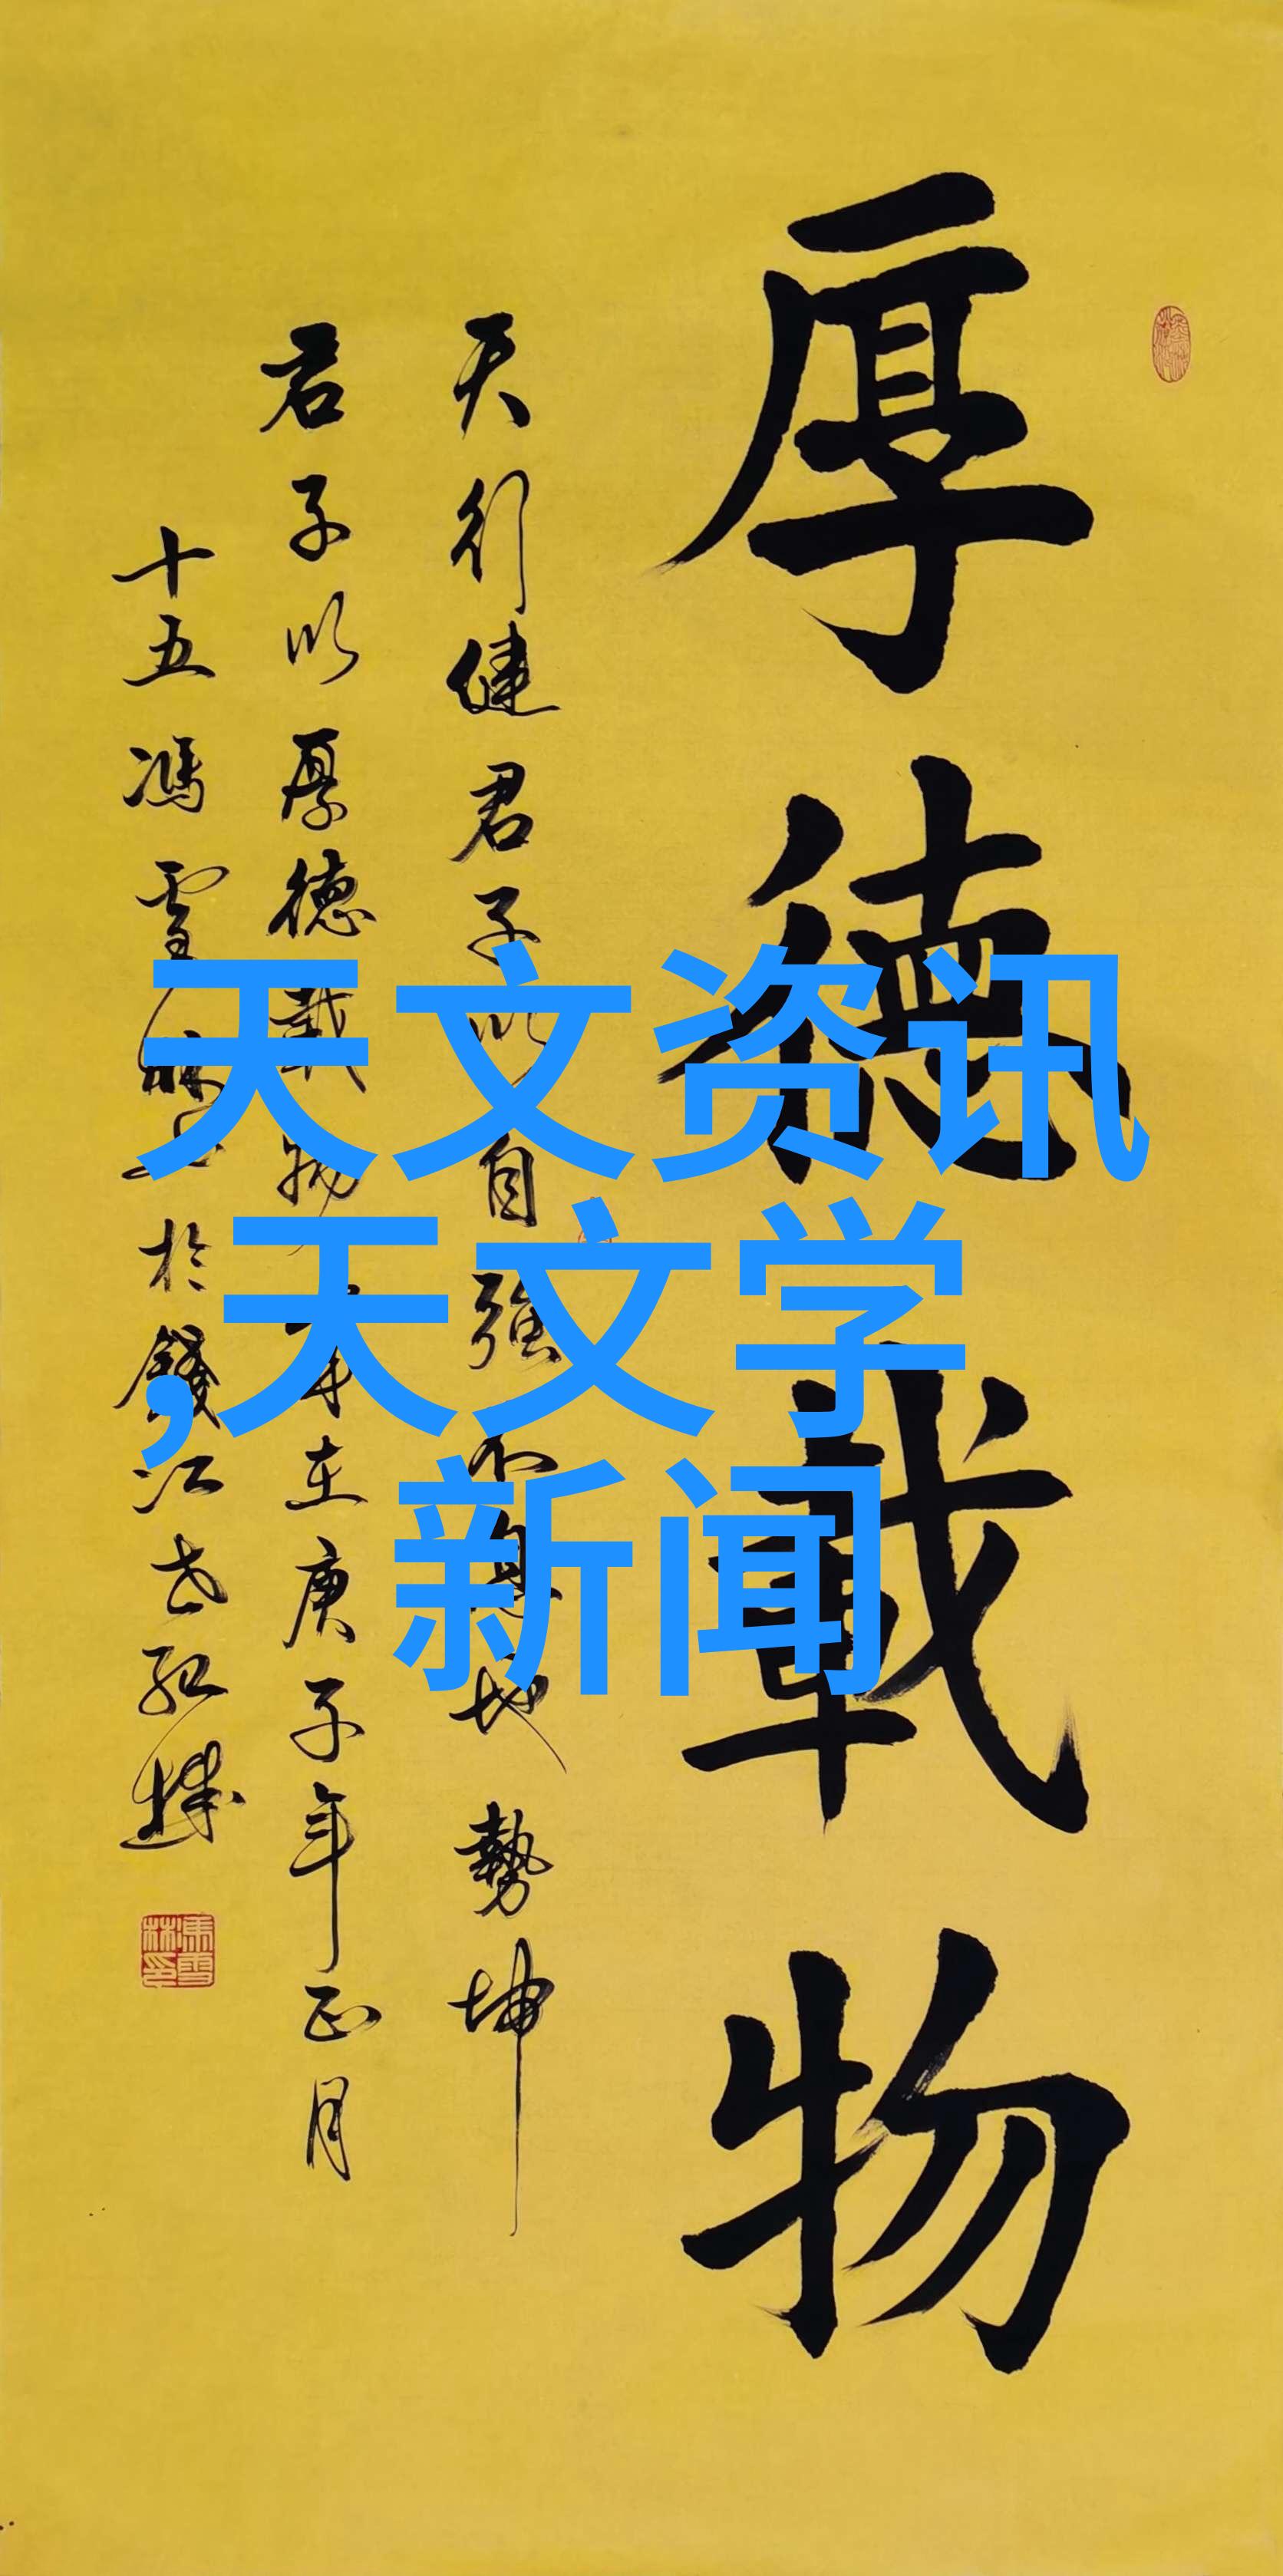 厚德载物
天行健君子以自强不息地勢坤
君子以厚德載物 庚子年正月
十五馮雪林於錢江
天文资讯
,天文学
新闻